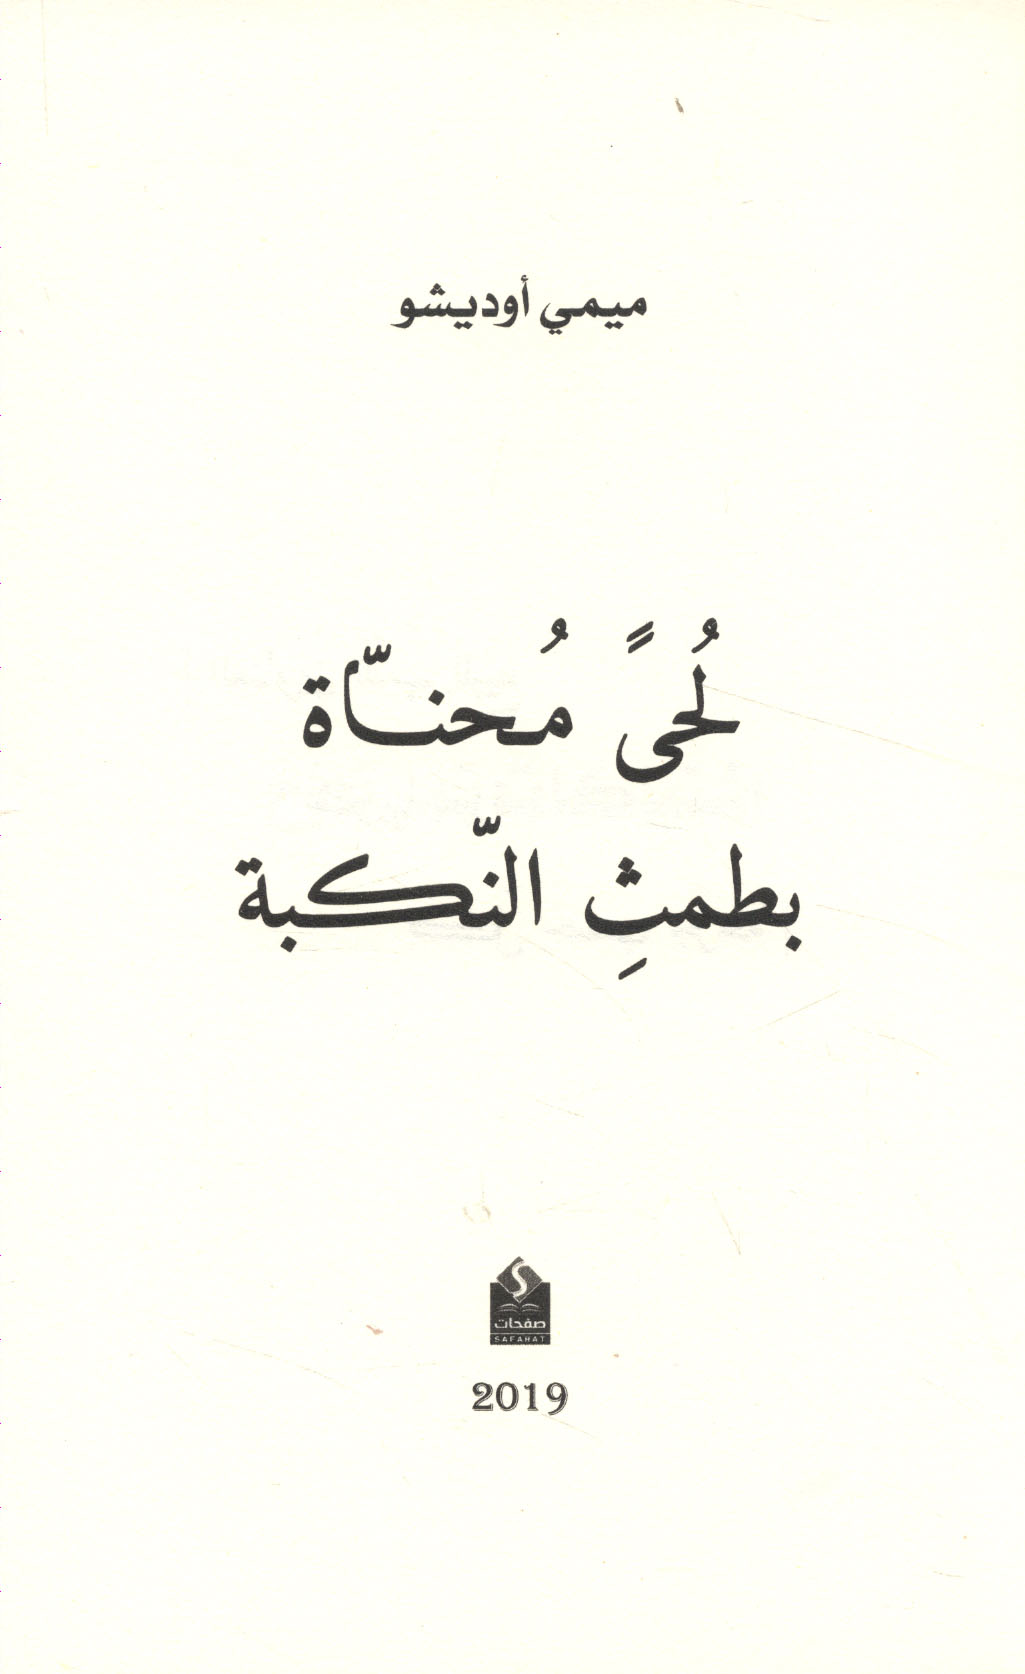 ميمي أوديشو
لُحىً مُحنــاّة
بطمثِ النّكبة
صفحات
SAFAHAT
2019